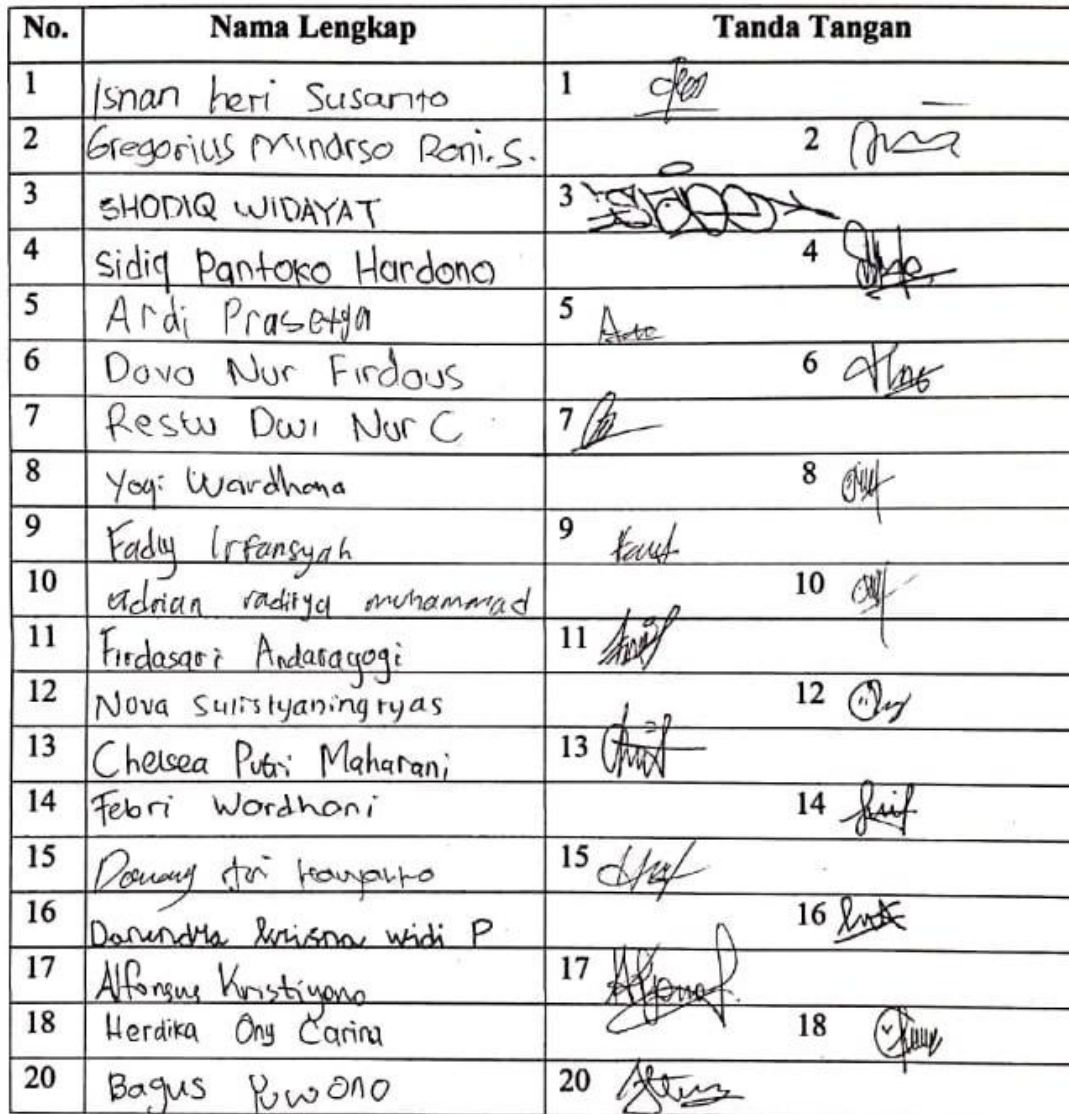 No. Nama Lengkap Tanda Tangan
1 Isnan heri Susanto 1
2 Gregorius Mindrso Roni. S. 2
3 SHODIQ WIDAYAT 3
4 Sidiq Pantoko Hardono 4
5 Ardi Prasetya 5
6 Dava Nur Firdaus 6
7 Restu Dwi Nur C 7
8 Yogi Wardhana 8
9 Fadly Irfansyah 9
10 adrian raditya muhammad 10
11 Firdasari Andaragogi 11
12 Nova Sulistyaningtyas 12
13 Chelsea Putri Maharani 13
14 Febri Wardhani 14
15 Danang tri 15
16 krisna widi P 16
17 Alfonsus Kristiyono 17
18 Herdika Ony Carina 18
20 Bagus Yuwono 20